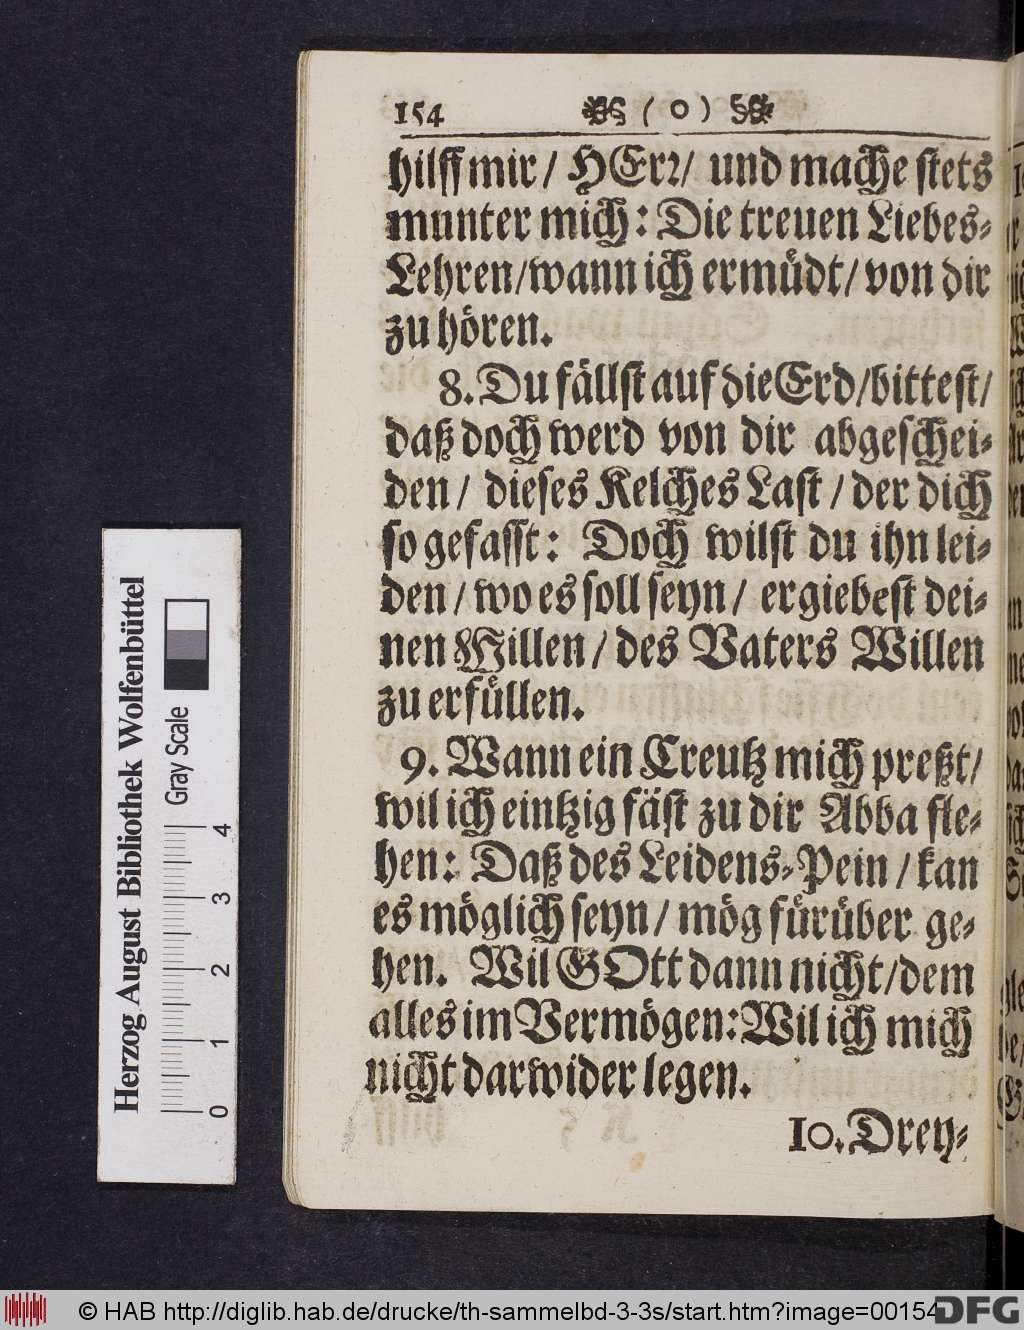 154 ( o )
hilff mir / HErꝛ / und mache stets
munter mich: Die treuen Liebes-
Lehren / wann ich ermüdt / von dir
zu hören.
8. Du fällst auf die Erd / bittest /
daß doch werd von dir abgeschei-
den / dieses Kelches Last / der dich
so gefasst: Doch wilst du ihn lei-
den / wo es soll seyn / ergiebest dei-
nen Willen / des Vaters Willen
zu erfüllen.
9. Wann ein Creutz mich preßt /
wil ich eintzig fäst zu dir Abba fle-
hen: Daß des Leidens-Pein / kan
es möglich seyn / mög fürüber ge-
hen. Wil GOtt dann nicht / dem
alles im Vermögen: Wil ich mich
nicht darwider legen.
10. Drey-
Herzog August Bibliothek Wolfenbüttel
Gray Scale
0 1 2 3 4
© HAB http://diglib.hab.de/drucke/th-sammelbd-3-3s/start.htm?image=00154
DFG